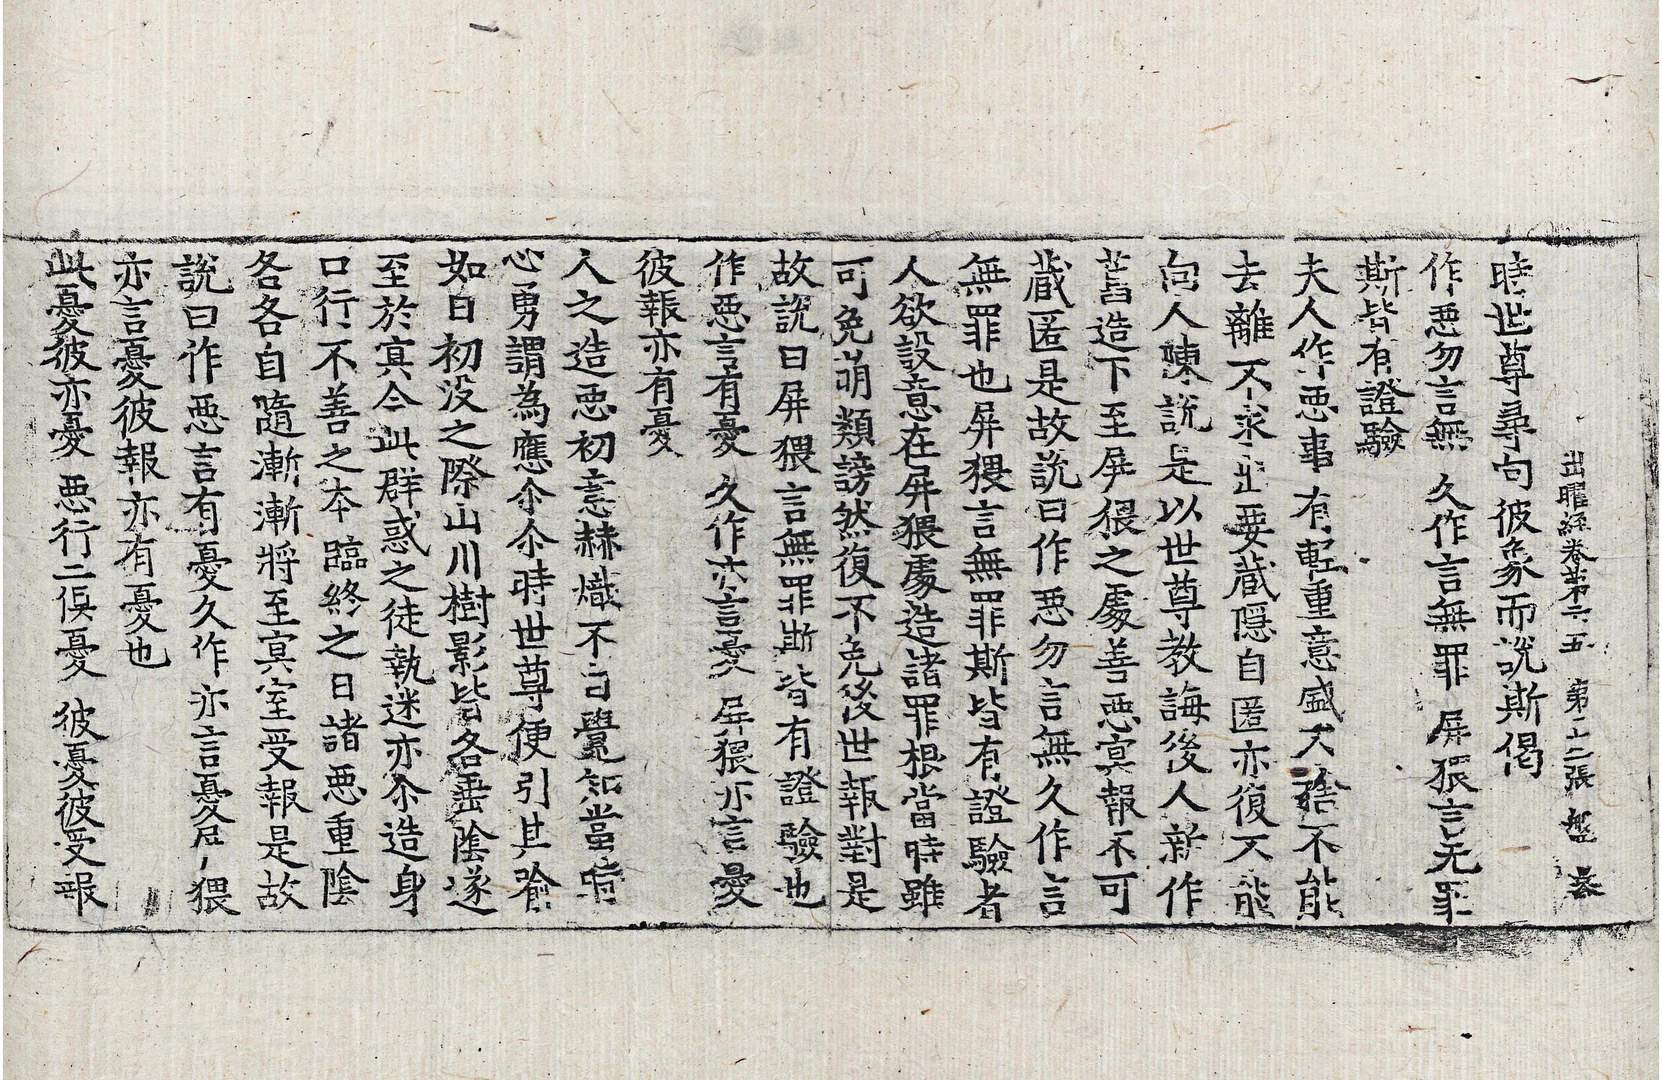 出曜經卷第二五　第十二張　盤
時世尊尋句彼象而說斯偈
作惡勿言無　久作言無罪　屏猥言无罪
斯皆有證驗
夫人作惡事有輕重意盛不捨不能
去離不求出要蔵隱自匿亦復不能
向人陳說是以世尊教誨後人新作
舊造下至屏猥之處善惡㝠報不可
蔵匿是故說曰作惡勿言無久作言
無罪也屏猥言無罪斯皆有證驗者
人欲設意在屏猥處造諸罪根當時雖
可免萠類謗然復不免後世報對是
故說曰屏猥言無罪斯皆有證驗也
作惡言有憂　久作亦言憂　屏猥亦言憂
彼報亦有憂
人之造惡初意赫熾不自覺知當時
心勇謂為應尒尒時世尊便引其喻
如日初没之際山川樹影皆各垂陰遂
至於㝠今此群惑之徒執迷亦尒造身
口行不善之本臨終之日諸惡重陰
各各自隨漸漸將至㝠室受報是故
說曰作惡言有憂久作亦言憂屏猥
亦言憂彼報亦有憂也
此憂彼亦憂　惡行二俱憂　彼憂彼受報